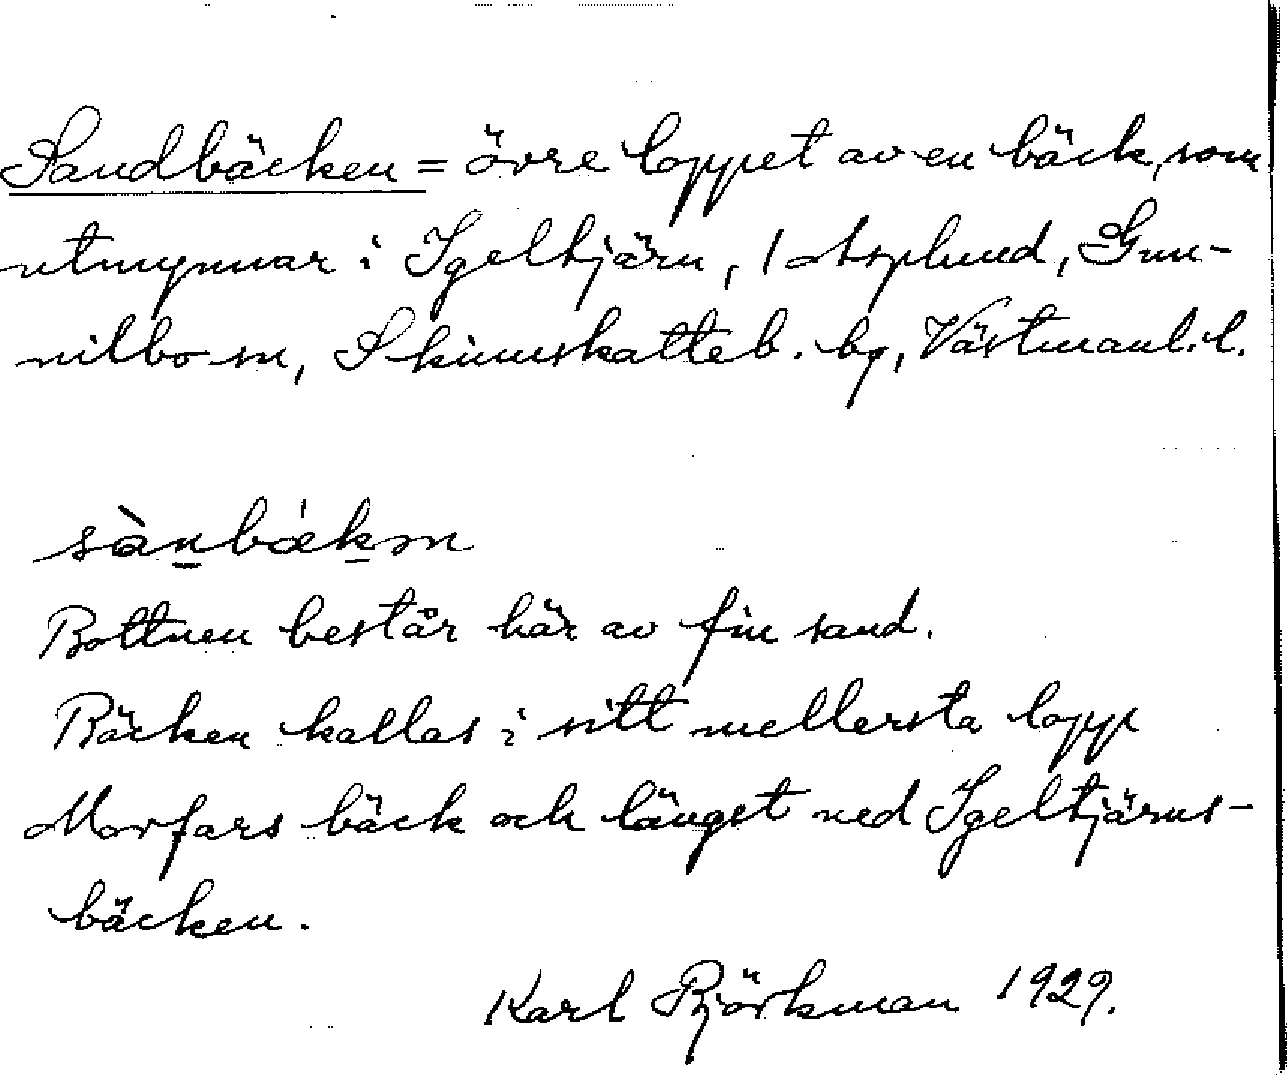 Sandbäcken = övre loppet av en bäck, som
utmynnar i Igeltjärn, 1 Asplund, Gun-
nilbo sn, Skinnskatteb. bg, Västmanl. l.
sànbækən
Bottnen består här av fin sand.
Bäcken kallas i sitt mellersta lopp
Morfars bäck och länget ned Igeltjärns-
bäcken.
Karl Björkman 1929.